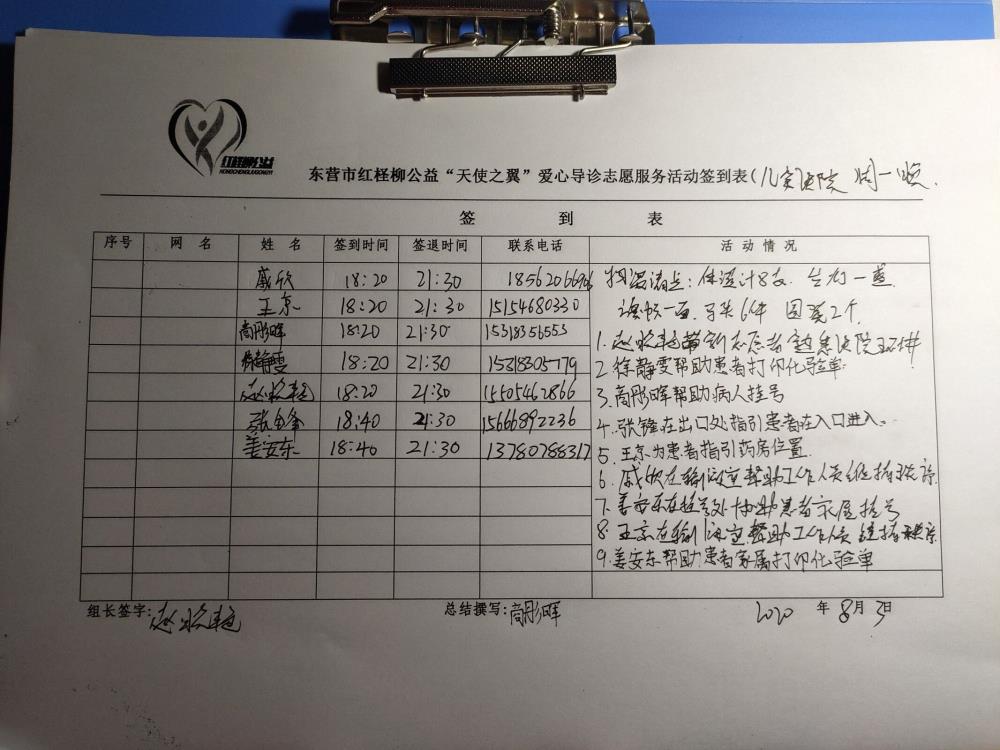 红柽柳公益
HONGCHENGLIUGONGYI
东营市红柽柳公益“天使之翼”爱心导诊志愿服务活动签到表(儿童医院 周一晚)
签 到 表
序号 网 名 姓 名 签到时间 签退时间 联系电话 活 动 情 况
戚欣 18:20 21:30
王京 18:20 21:30 15154680330
商彤晖 18:20 21:30 15318356553
徐静雯 18:20 21:30 15318305779
赵 18:20 21:30 15505462866
张锋 18:40 21:30 15666892236
姜安东 18:40 21:30 13780788317
物品清点:体温计8支
马夹6件 2个
1.赵 带领志愿者
2.徐静雯帮助患者打印化验单
3.商彤晖帮助病人挂号
4.张锋在出口处指引患者在入口进入.
5.王京为患者指引药房位置
6.戚欣在输液室帮助工作人员维持秩序
7.姜安东在挂号处协助患者家属挂号
8.王京在输液室帮助工作人员维持秩序
9.姜安东帮助患者家属打印化验单
组长签字:赵 总结撰写:商彤晖 2020 年 8月3日